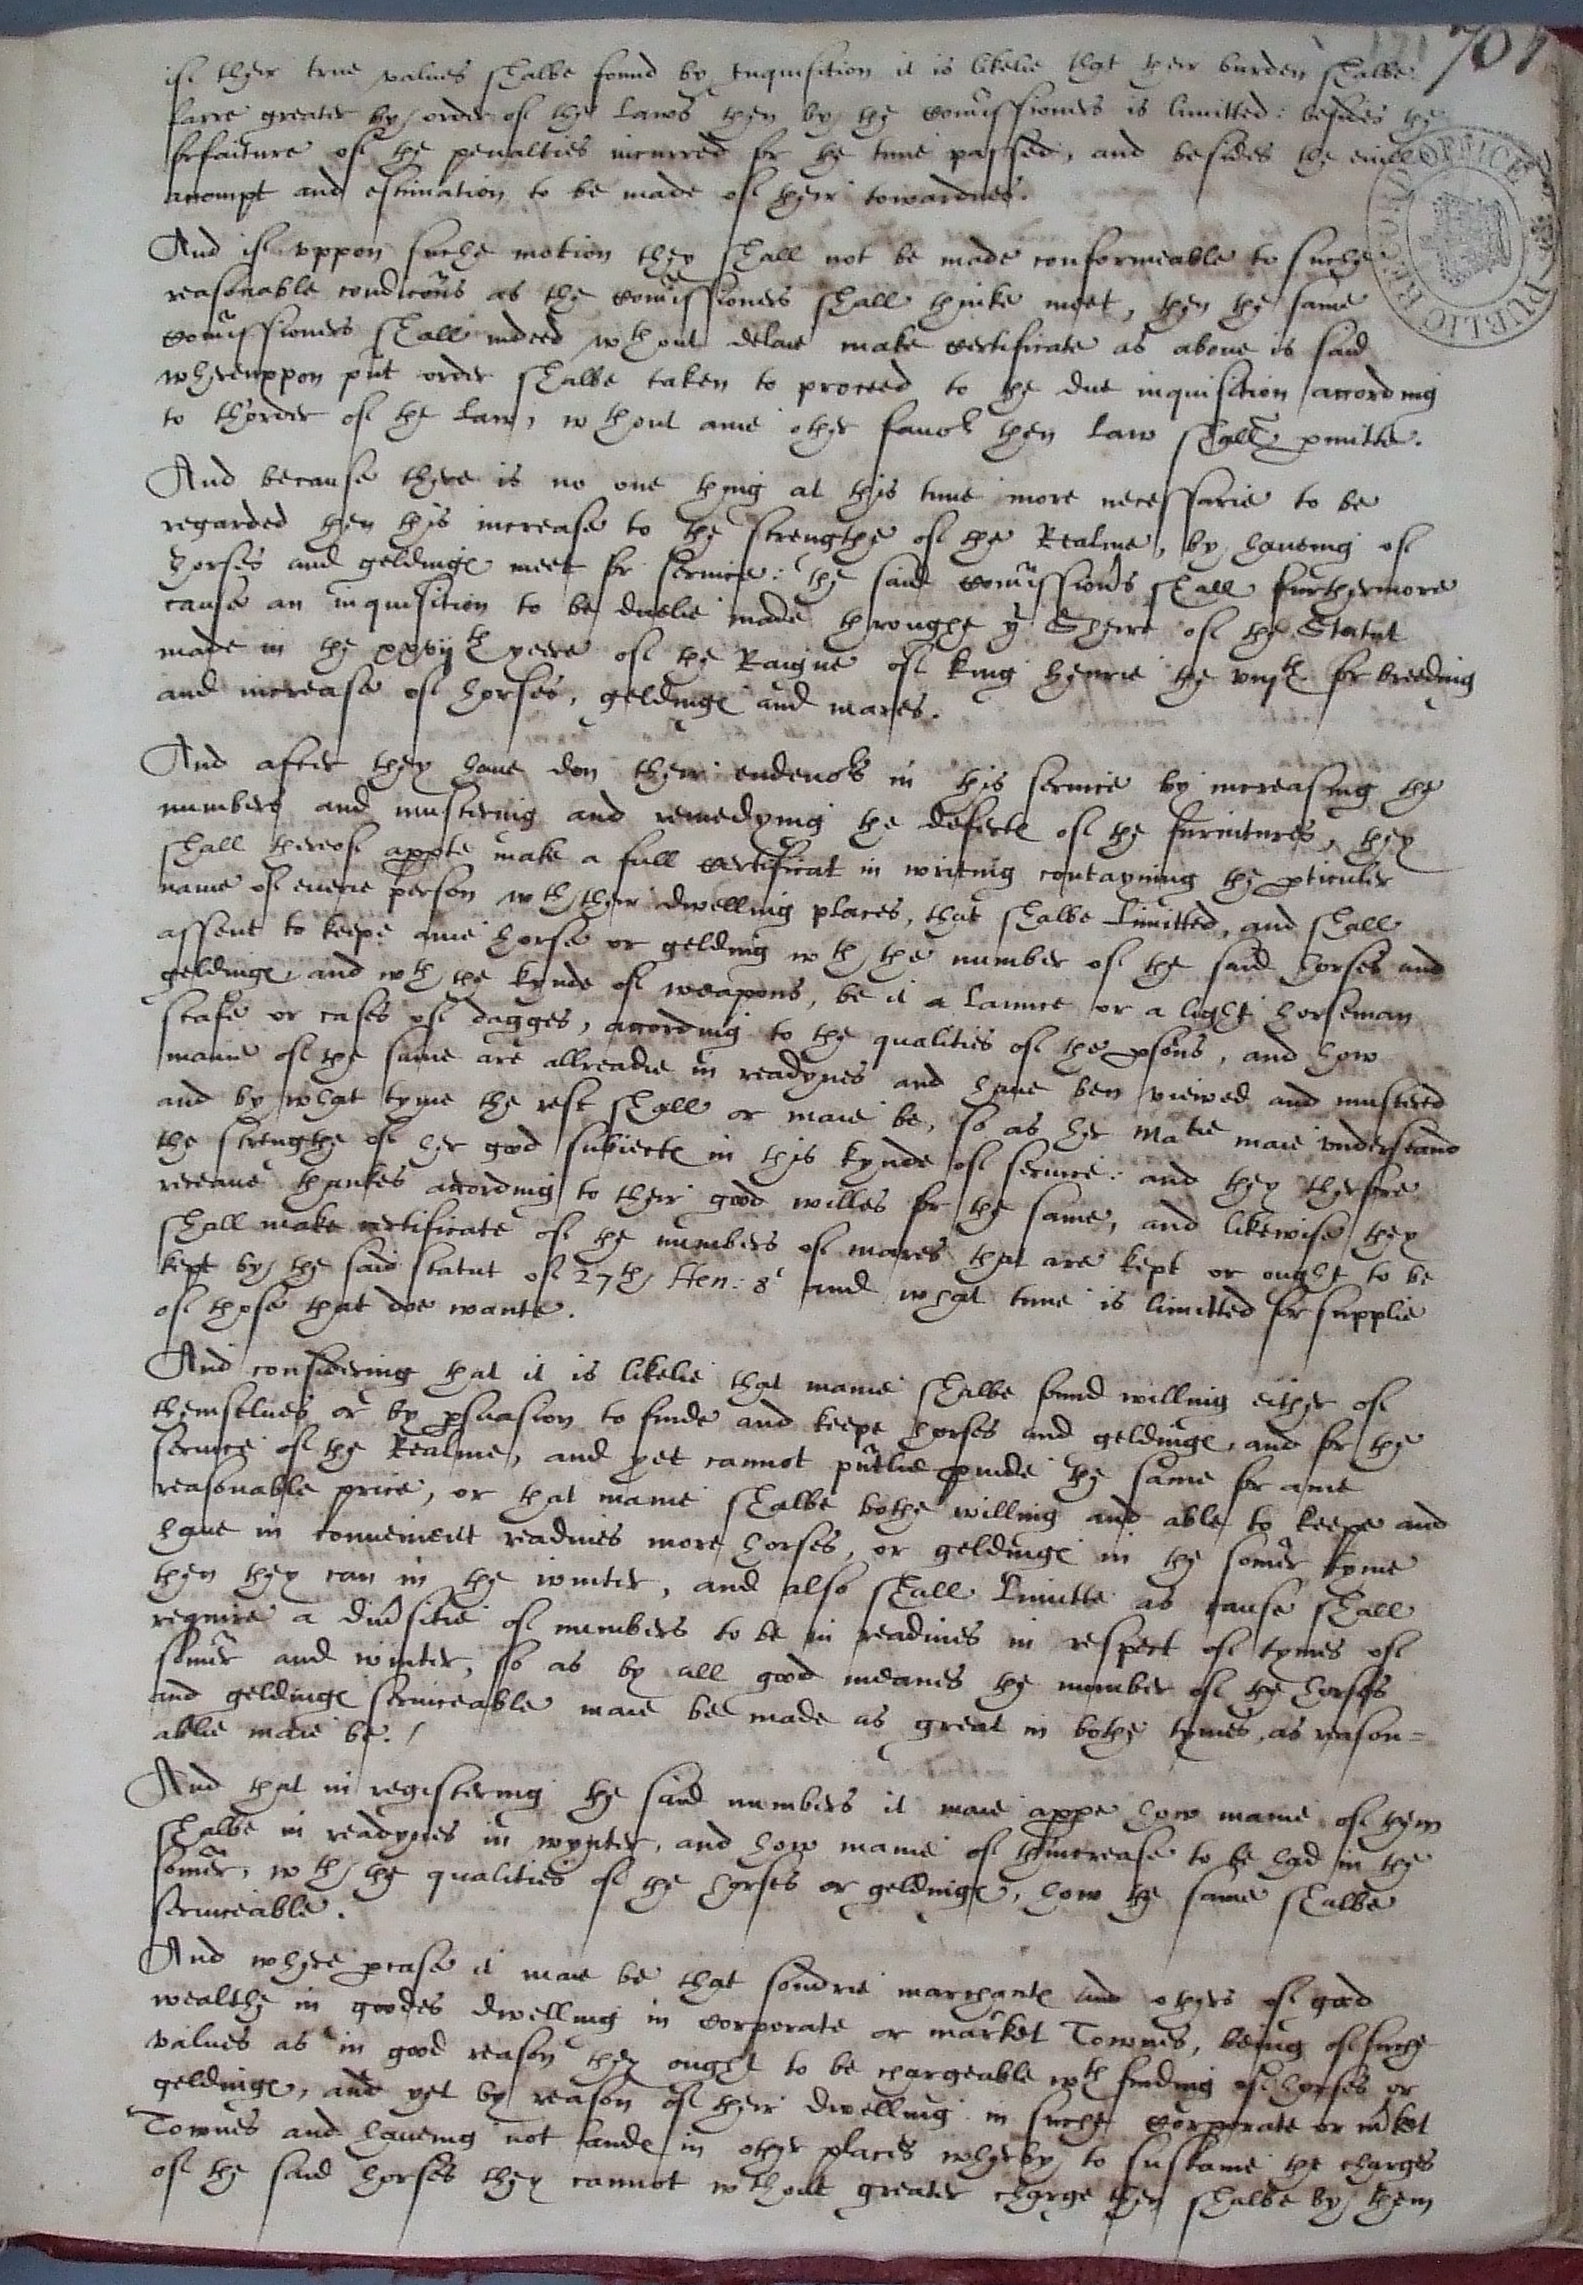 704
if their true values shalbe found by inquisition it is likelie that their burden shalbe
farre greater by order of the Laws then by the Comissioners is limitted: besides the
forfaiture of the penalties incurred for the time passed, and besides the evill
accompt and estimation to be made of their towardnes.
And if uppon suche motion they shall not be made conformeable to suche
reasonable condicons as the Comissioners shall thinke meet, then the same
Comissioners shall indeed wthout delaie make Certificate as above is said
whereuppon put order shalbe taken to proceed to the due inquisition according
to thorder of the Law, wthout anie other favor then Law shall pmitte.
And because there is no one thing at this time more necessarie to be
regarded then this increase to the strengthe of the Realme, by having of
horses and geldings meet for service: the said Comissioners shall furthermore
cause an inquisition to be duelie made throughe ye Sheire of the Statut
made in the xxvijth yeere of the Raigne of king Henrie the viijth for breeding
and increase of horses, geldings and mares.
And after they have don their endevors in this service by increasing the
numbers and mustering and remedying the defects of the furnitures, they
shall thereof apte make a full Certificat in writing contayning the pticuler
name of everie person wth their dwelling places, that shalbe limitted, and shall
assent to keepe anie horse or gelding wth the number of the said horses and
geldings, and wth the kynde of weapons, be it a Launce or a light horseman
stafe or cases of dagges, according to the qualities of the psons, and how
manie of the same are allreadie in readynes and have ben viewed and mustered
and by what tyme the rest shall or maie be, so as her Matie maie understand
the strengthe of her good subiects in this kynde of service: and they therfore
receave thankes according to their good willes for the same, and likewise they
shall make certificate of the numbers of mares that are kept or ought to be
kept by the said statut of 27th Hen: 8i and what time is limitted for supplie
of those that doe wante.
And considering that it is likelie that manie shalbe found willing either of
themselves or by psuasion to finde and keepe horses and geldings, and for the
service of the Realme, and yet cannot putlie pvide the same for anie
reasonable price, or that manie shalbe bothe willing and able to keepe and
have in convenient readines more horses, or geldings in the somer tyme
then they can in the winter, and also shall limitte as cause shall
require a divsitie of numbers to be in readines in respect of tymes of
somer and winter, so as by all good meanes the number of the horses
and geldings serviceable maie be made as great in bothe tymes, as reason=
ablie maie be. /
And that in registering the said numbers it maie appe how manie of them
shalbe in readynes in wynter, and how manie of thincrease to be had in the
somer, wth the qualities of the horses or geldings, how the same shalbe
serviceable.
And where pcase it maie be that sondrie marchants and others of good
wealthe in goodes dwelling in Corporate or market Townes, being of suche
values as in good reason they ought to be chargeable wth finding of horses or
geldings, and yet by reason of their dwelling in suche Corporate or mket
Townes and having not lands in other places wherby to sustaine the charges
of the said horses they cannot wthout greater charge then shalbe by them
PUBLIC RECORD OFFICE